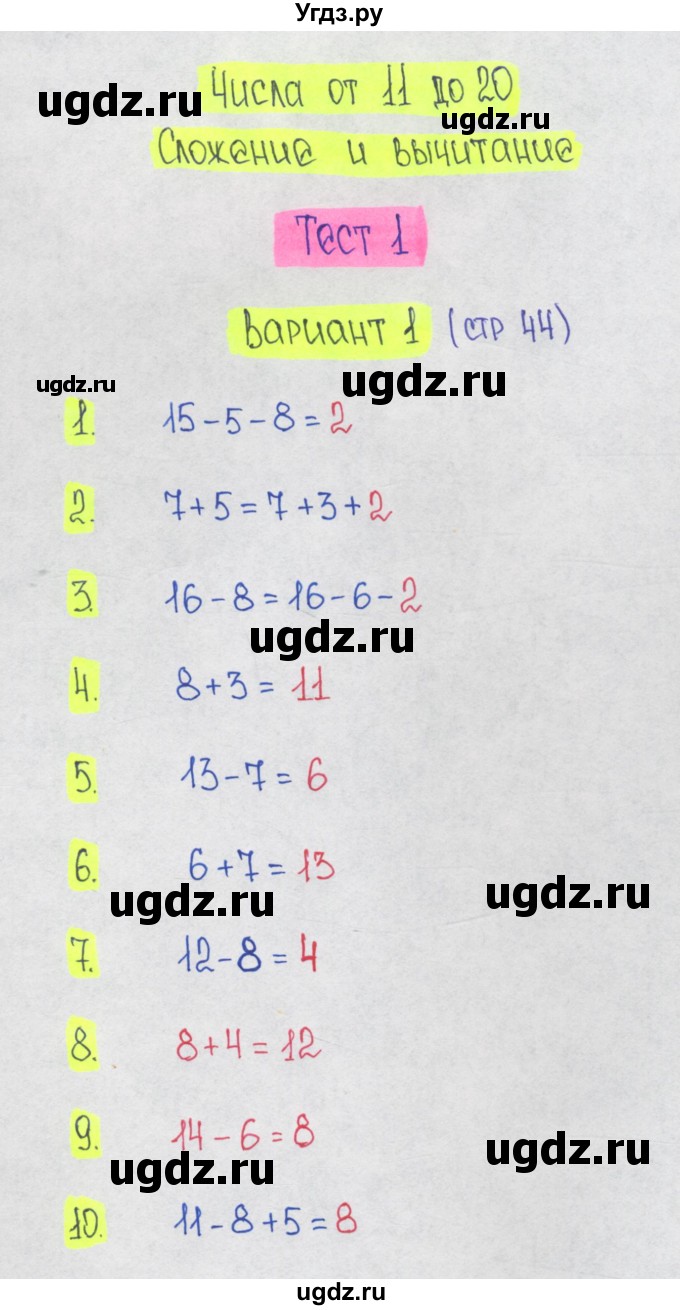 Угдз.ру
Числа от 11 до 20
ugdz.ru
ugdz.ru
Сложение и вычитание
Тест 1
Вариант 1 (стр 44)
ugdz.ru
ugdz.ru
1. 15-5-8=2
2. 7+5=7+3+2
3. 16-8=16-6-2
ugdz.ru
4. 8+3=11
5. 13-7=6
6. 6+7=13
ugdz.ru
ugdz.ru
7. 12-8=4
8. 8+4=12
9. 14-6=8
ugdz.ru
ugdz.ru
10. 11-8+5=8
ugdz.ru